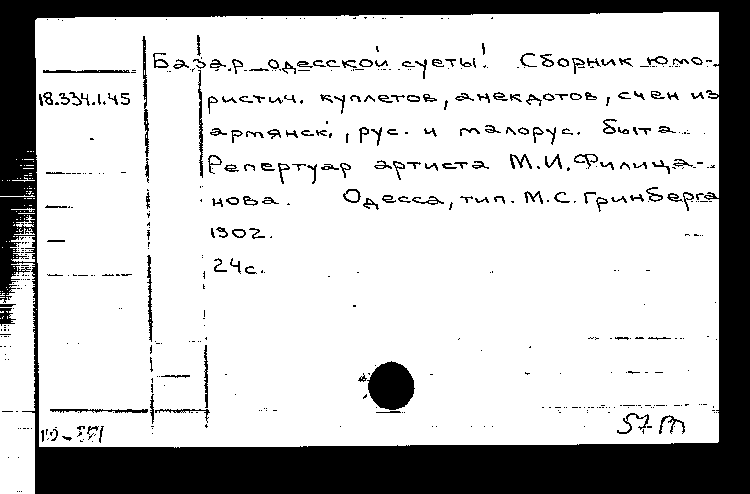 Базар одесской суеты! Сборник юмо-
18.334.1.45 ристич. куплетов, анекдотов, сцен из
армянск., рус. и малорус. быта
Репертуар артиста М.И.Филица-
нова. Одесса, тип. М.С.Гринберга
1902.
24с.
57